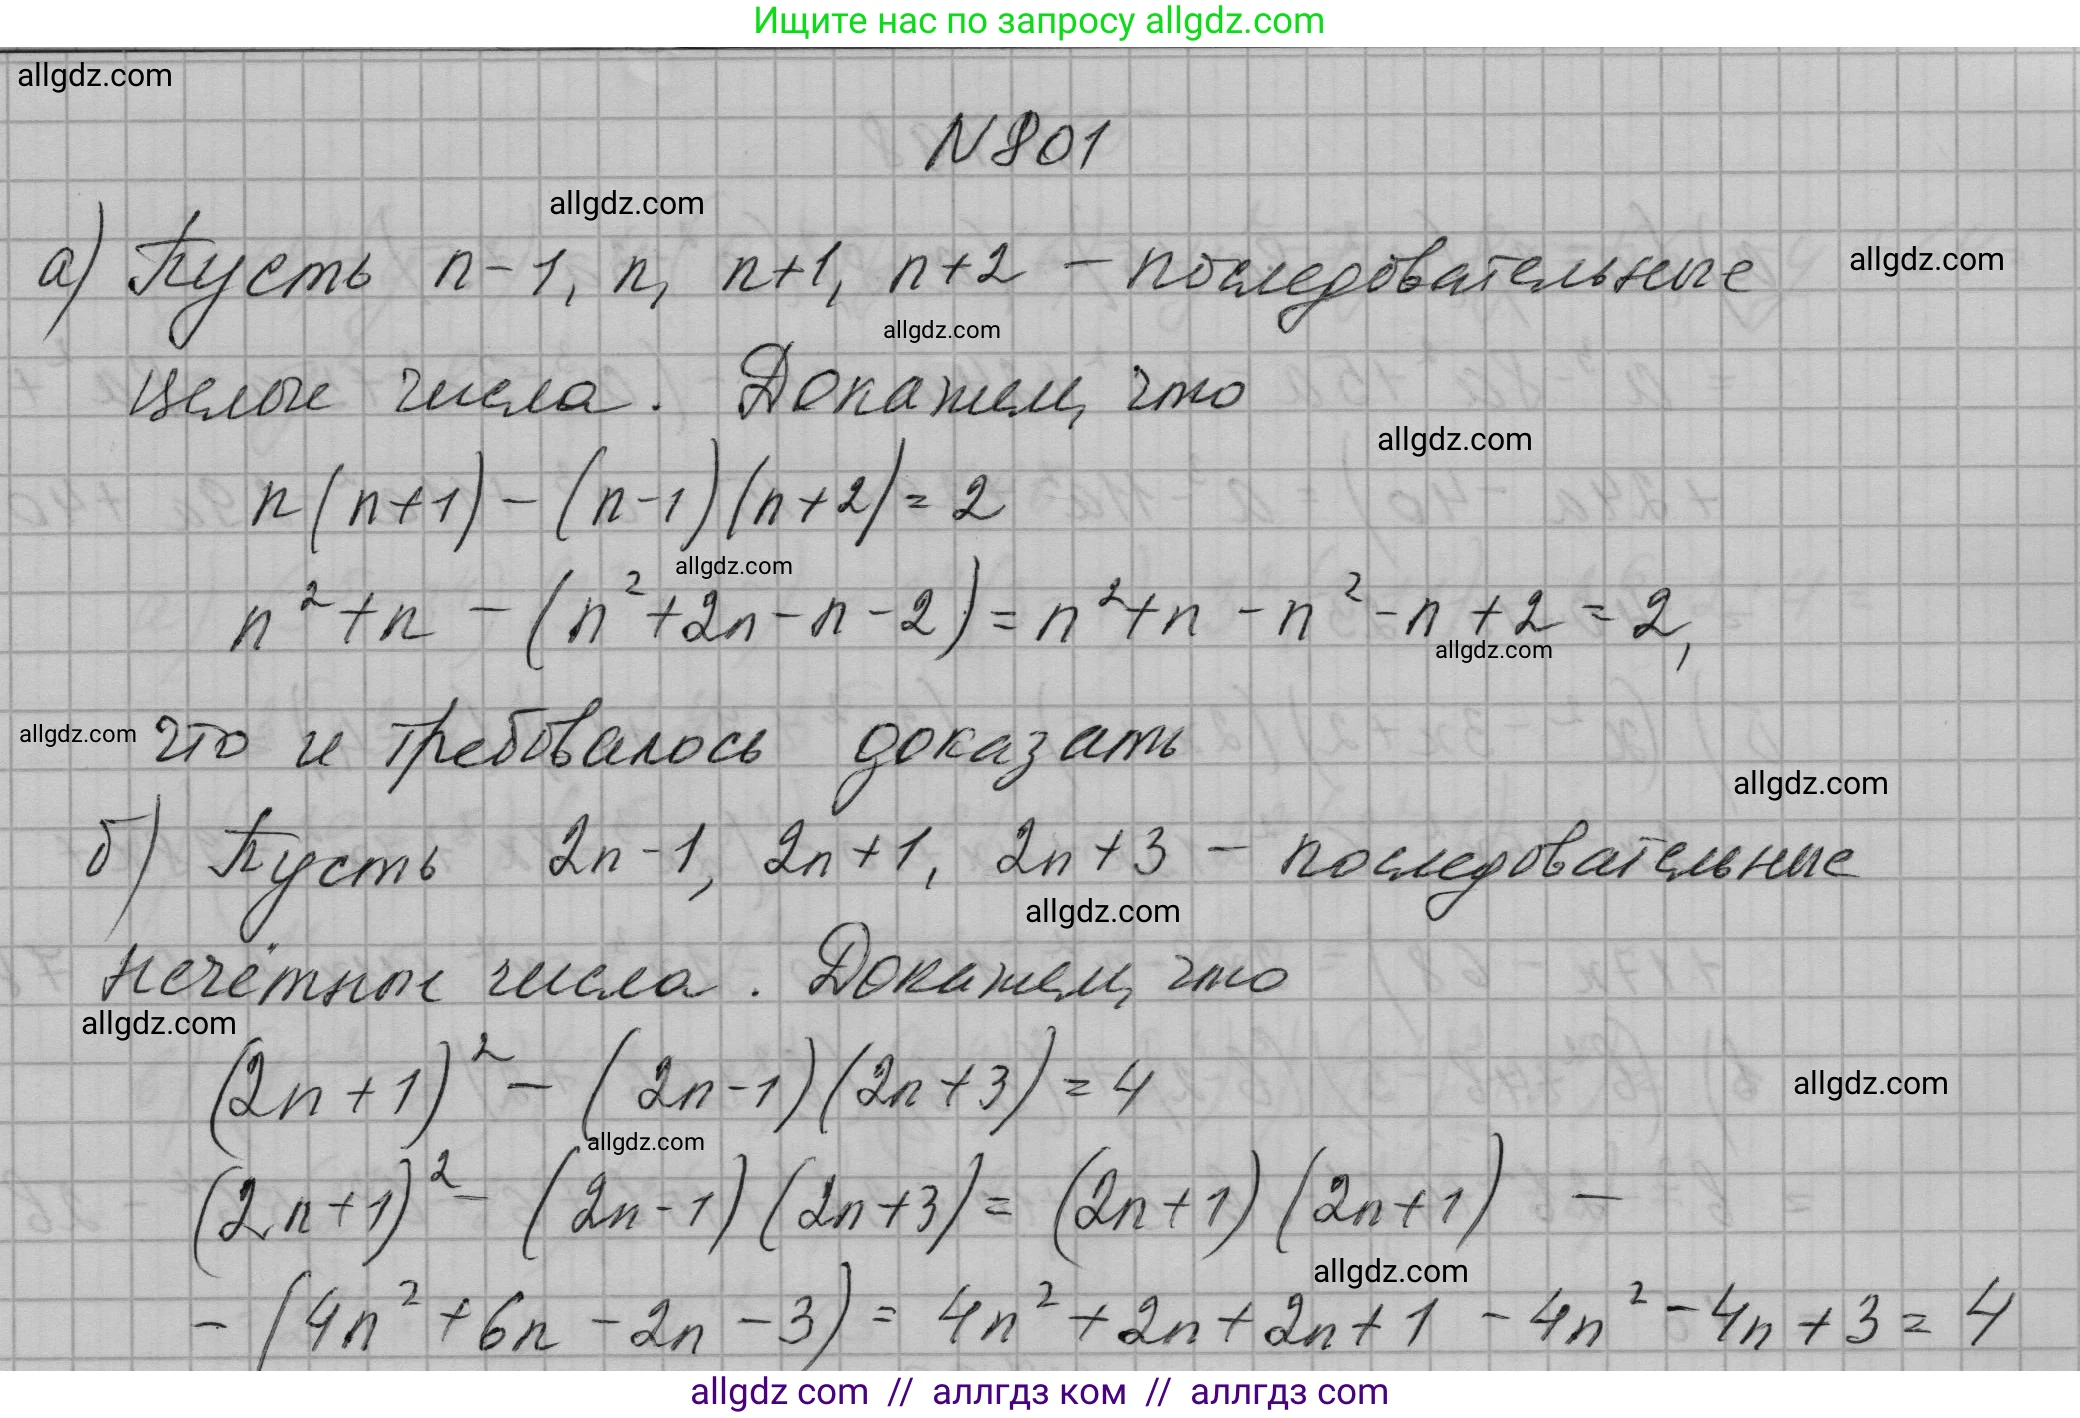 Ищите нас по запросу allgdz.com
allgdz.com
№801
allgdz.com
а) Пусть n-1, n, n+1, n+2 - последовательные
allgdz.com
allgdz.com
целые числа. Докажем, что
allgdz.com
n(n+1)-(n-1)(n+2)=2
allgdz.com
n²+n-(n²+2n-n-2)=n²+n-n²-n+2=2,
allgdz.com
allgdz.com
что и требовалось доказать
allgdz.com
б) Пусть 2n-1, 2n+1, 2n+3 - последовательные
allgdz.com
нечётные числа. Докажем, что
allgdz.com
(2n+1)²-(2n-1)(2n+3)=4
allgdz.com
allgdz.com
(2n+1)²-(2n-1)(2n+3)=(2n+1)(2n+1)-
allgdz.com
-(4n²+6n-2n-3)=4n²+2n+2n+1-4n²-4n+3=4
allgdz com // аллгдз ком // аллгдз com